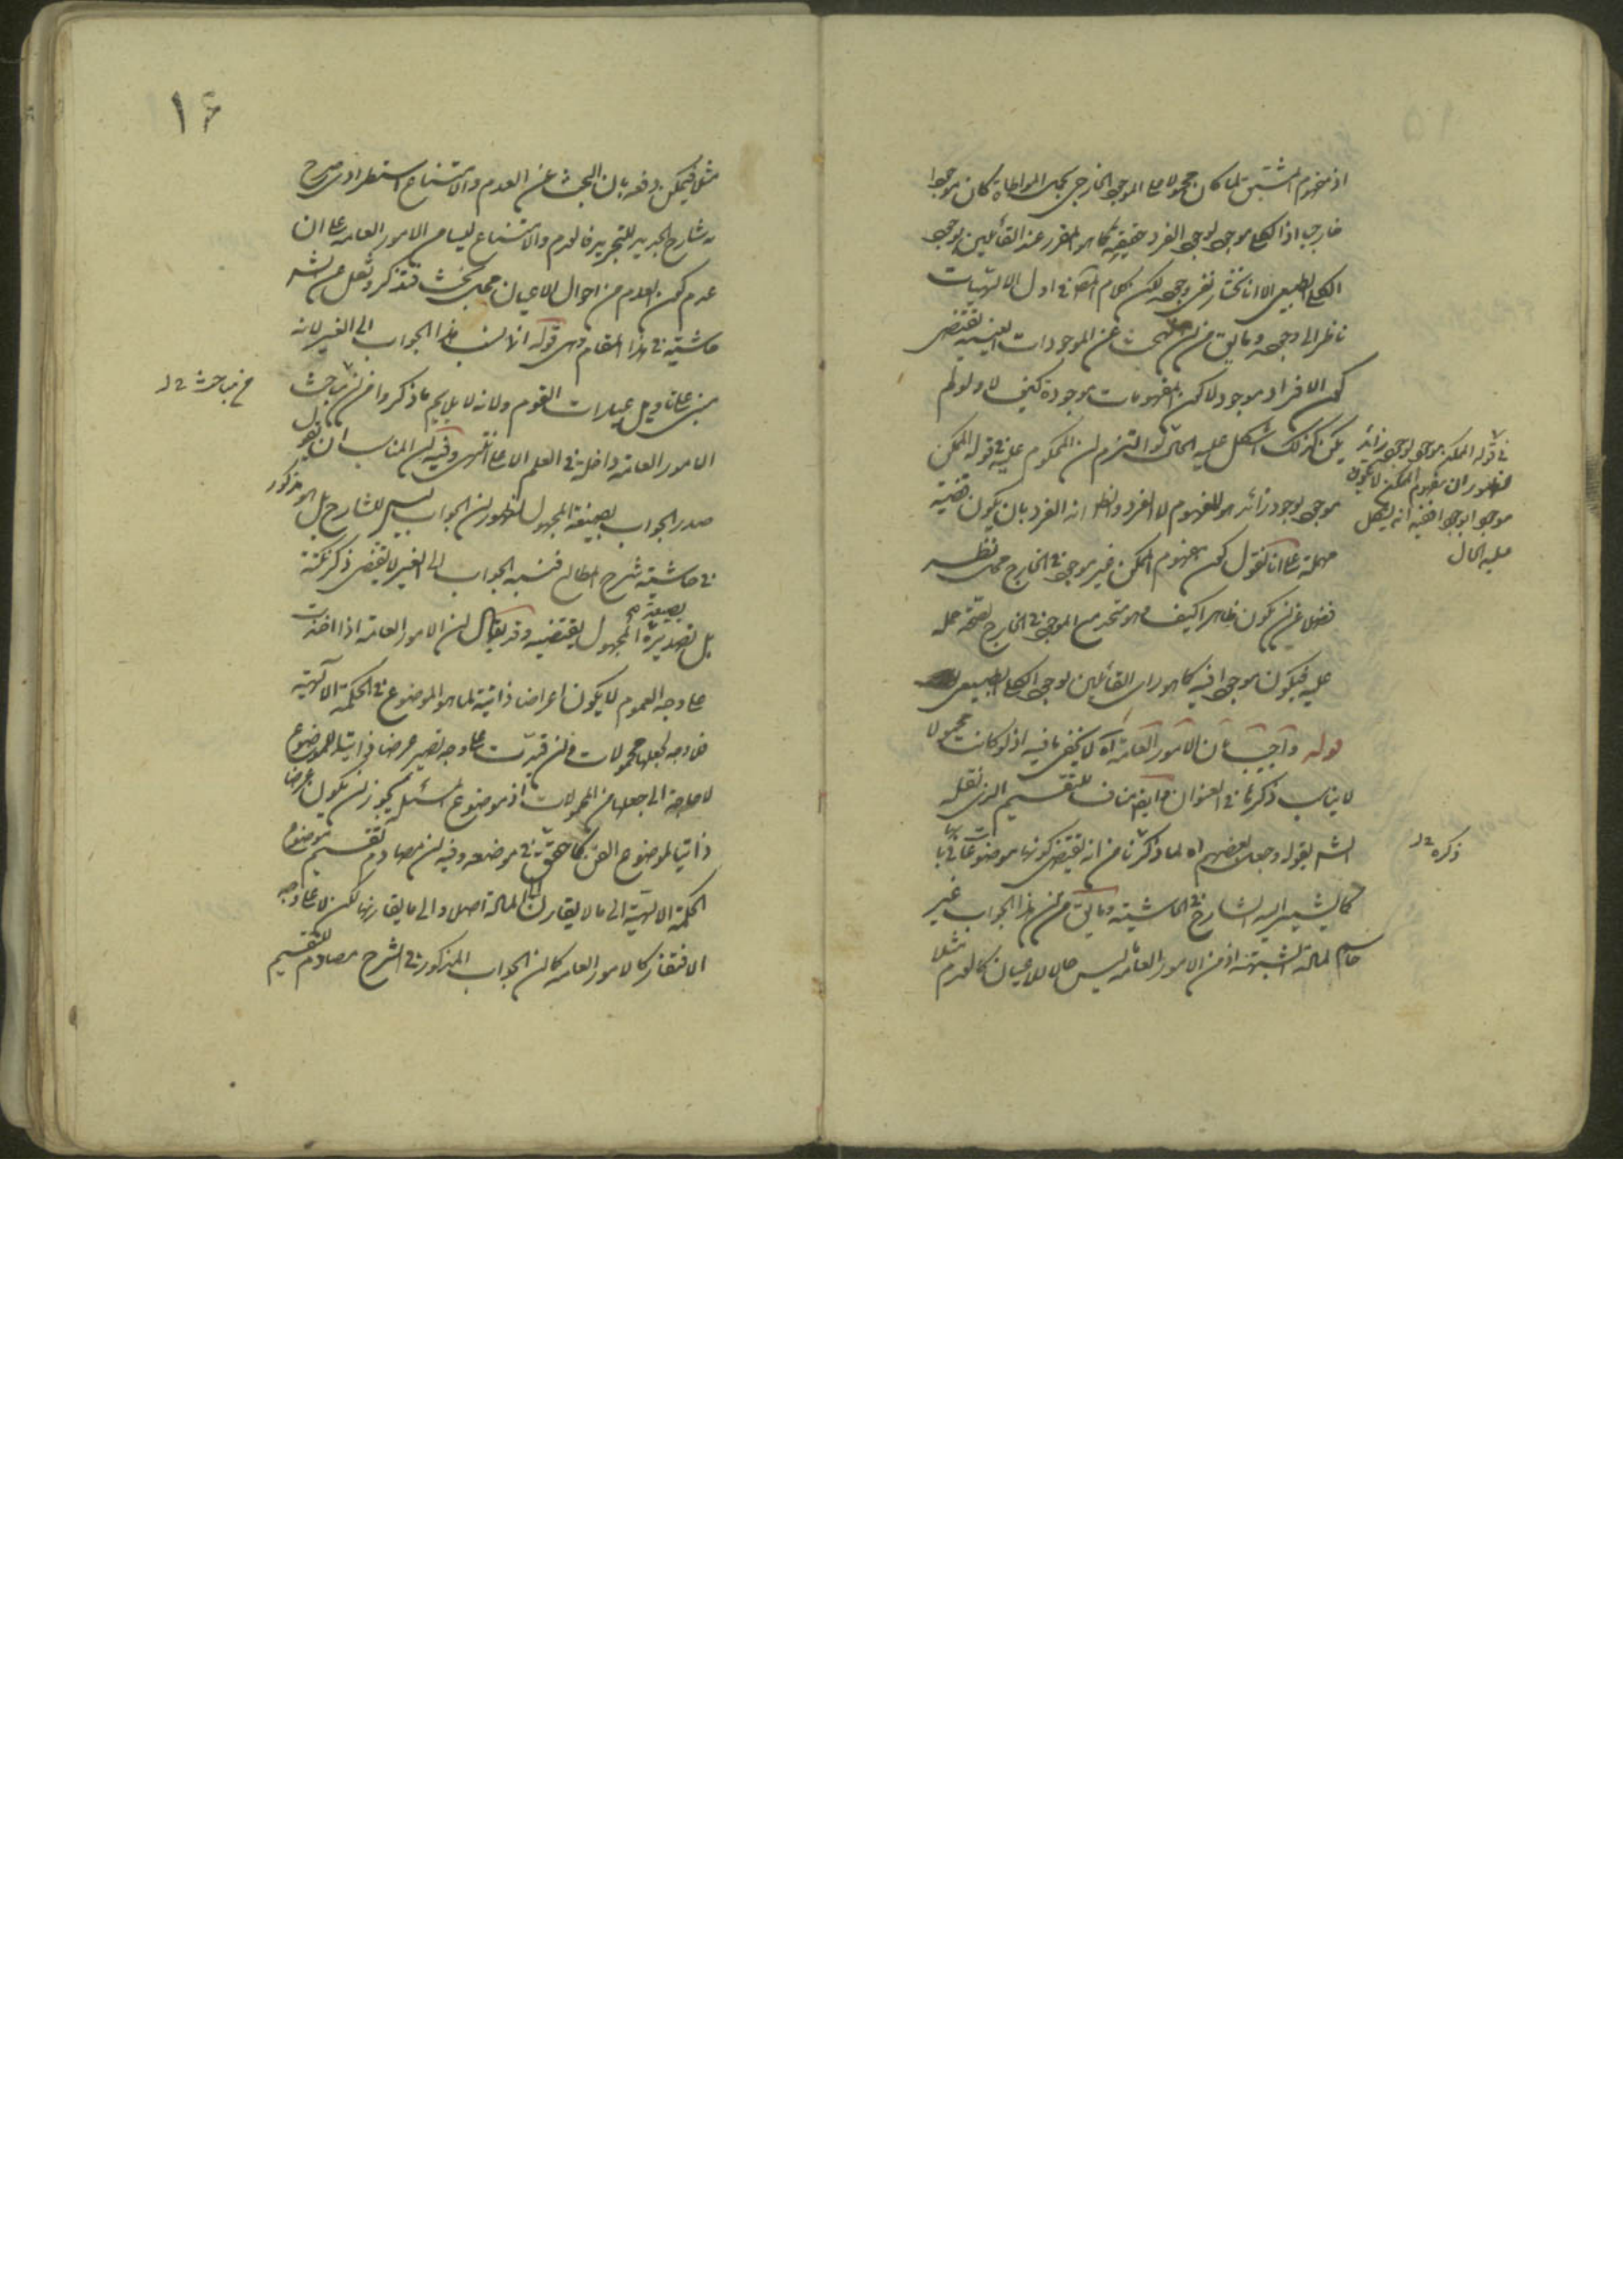 اذ مفهوم المشتق لما كان محمولا على الموجود الخارجي بحمل المواطاة كان موجودا
خارجيا اذ الكلي موجود بوجود الفرد حقيقة كما هو المقرر عند القائلين بوجود
الكلي الطبيعي الا انا نختار نفي وجوده لكن كلام المص في اول الالهيات
ناظر الى وجوده وما يق من ان البحث عن الموجودات العينية يقتضي
كون الافراد موجودة لا كون المفهومات موجودة كيف لا ولو لم
يكن كذلك اشكل عليه الحال لو التزم ان المحكوم عليه في قوله الممكن
موجود بوجود زائد هو المفهوم لا الفرد والظ انه الفرد بان يكون قضية
مهملة على انا نقول كون مفهوم الممكن غير موجود في الخارج محل نظر
فضلا عن ان يكون ظاهرا كيف وهو متحد مع الموجود في الخارج لصحة حمله
عليه فيكون موجودا فيه كما هو راي القائلين بوجود الكلي الطبيعي
قوله واجيب بان الامور العامة آه لا يخفى ما فيه اذ لو كانت محمولا
لا يناسب ذكرها في العنوان وايضا مناف للتقسيم الذي نقله
الش بقوله وجعل بعضهم اه لما ذكرنا من انه يقتضي كونها موضوعات
كما يشير اليه الشارح في الحاشية وما يق من ان هذا الجواب غير
حاسم لمادة الشبهة اذ من الامور العامة ليس حالا للاعيان كالعدم مثلا
في قوله الممكن موجود بوجود زائد
لظهور ان مفهوم الممكن لا يكون
موجودا بوجود افيه انه يشكل
عليه الحال
ذكره
١٦
مثلا فيمكن دفعه بان البحث عن العدم والامتناع استطرادي صرح
به شارح الجديد للتجريد فالعدم والامتناع ليسا من الامور العامة على ان
عدم كون العدم من احوال الاعيان محل بحث فتذكر ونقل عن الش
حاشية في هذا المقام وهي قوله انما نسب هذا الجواب الى الغير لانه
مبني على تاويل عبارات القوم ولانه لا يلايم ما ذكروا من ان مباحث
الامور العامة داخلة في العلم الاعلى انتهى وفيه ان المناسب ان يقول
صدر الجواب بصيغة المجهول لظهور ان الجواب ليس للشارح بل هو مذكور
في حاشية شرح المطالع فنسبه الجواب الى الغير لا يقتضي ذكر نكتة
بل تصديره بصيغة المجهول يقتضيه وقد يقال ان الامور العامة اذا اخذت
على وجه العموم لا يكون اعراضا ذاتية لما هو الموضوع في الحكمة الالهية
فلا وجه لجعلها محمولات وان قيدت على وجه تصير عرضا ذاتيا للموضوع
لا حاجة الى جعلها من المحمولات اذ موضوع المسئلة يجوز ان يكون عرضا
ذاتيا لموضوع الفن كما حقق في موضعه وفيه ان مصادم تقسيم موضوع
الحكمة الالهية الى ما لا يقارن المادة اصلا والى ما يقارنها لكن لا على وجه
الافتقار كالامور العامة كما ان الجواب المذكور في الشرح مصادم للتقسيم
من مباحث